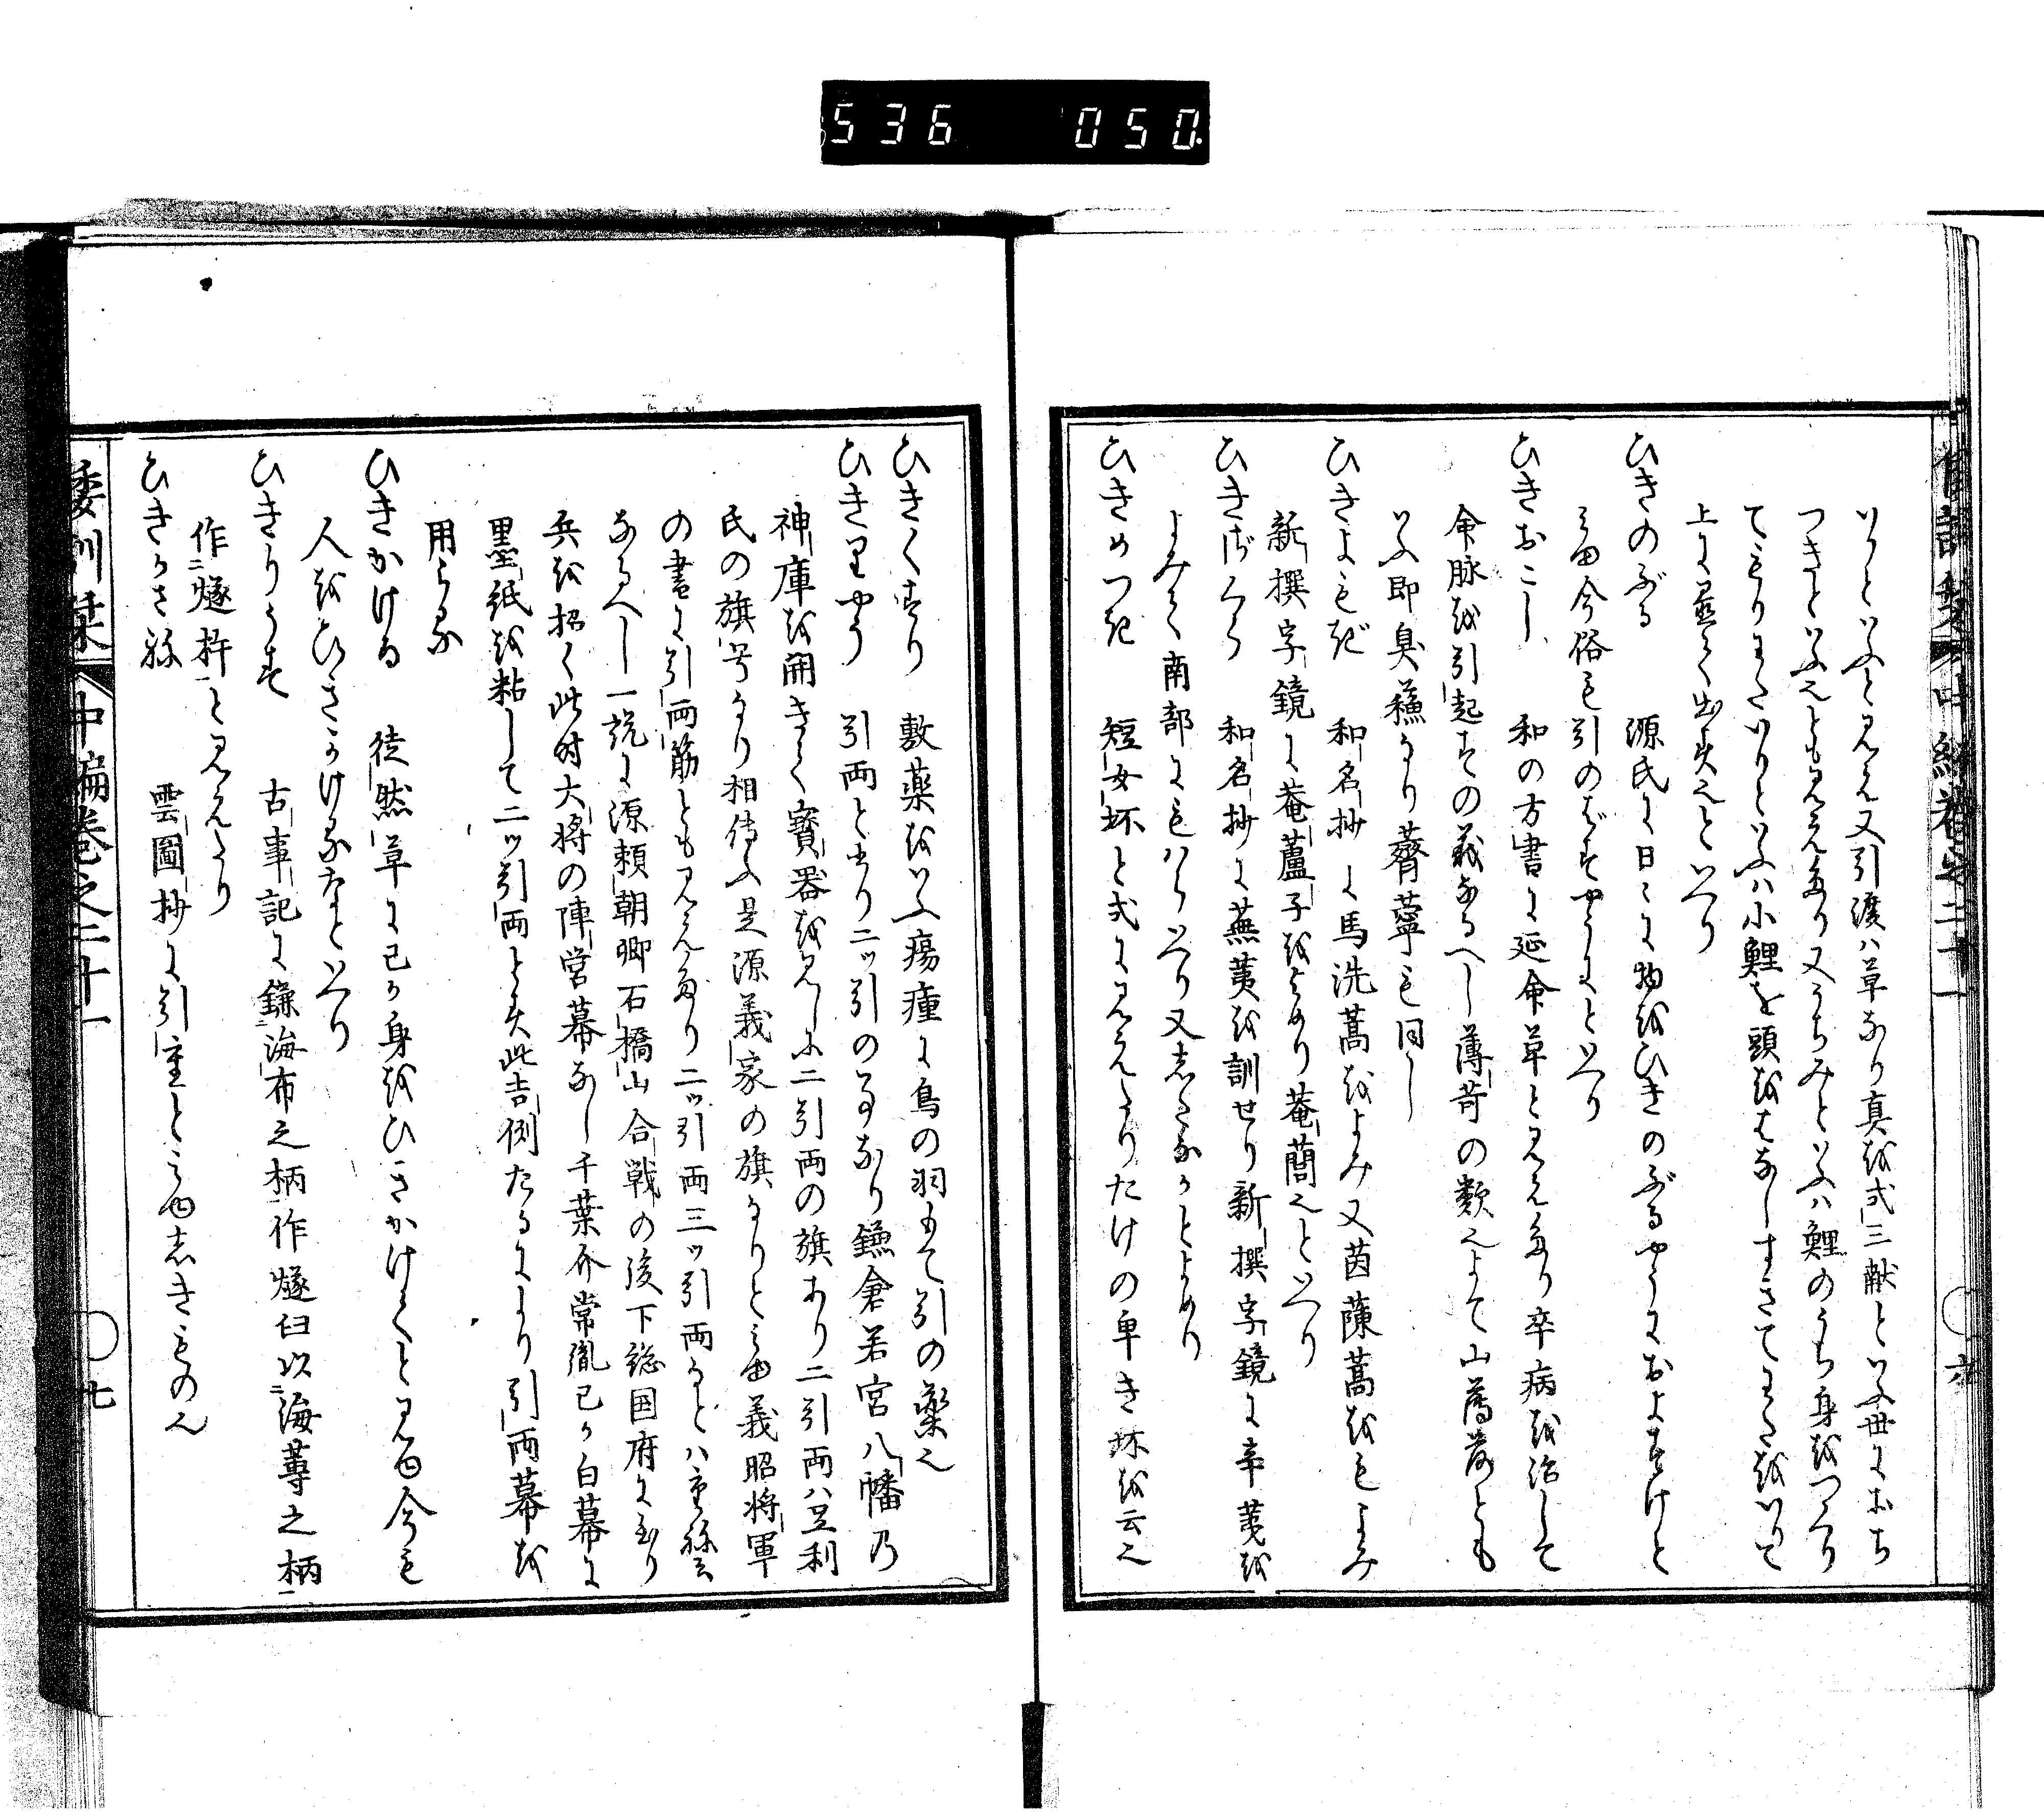 536 050
いりといふと見え又引渡ハ草なり真を式三献といふ世におち
つきといふ也とも見えたり又うちみといふハ鯉のうち身をつくり
てもりまたいりといふハ小鯉を頭をはなしすきてまたをいりて
上に置て出す也といへり
ひきのぶる 源氏に日ゝに物をひきのぶるやうにおよすけと
みゆ今俗も引のばすやうにといへり
ひきおこし 和の方書に延命草と見えたり卒病を治して
命脉を引起すの義なるへし薄苛の類也よて山薄荷とも
いふ即臭蘓なり薺薴も同し
ひきよもぎ 和名抄に馬洗蒿をよみ又茵蔯蒿をもよみ
新撰字鏡に菴蘆子をよめり菴蕳也といへり
ひきざくら 和名抄に蕪荑を訓せり新撰字鏡に辛荑を
よみて南部にもいへり又ことよめり
ひきめつき 短女坏と式に見えたりたけの卑き坏を云也
ひきくすり 敷薬をいふ瘍瘇に鳥の羽もて引の薬也
ひきりやう 引両と書り二ッ引のるなり鎌倉若宮八幡乃
神庫を開きて寳器を見しに二引両の旗あり二引両ハ足利
氏の旗号なり相傳ふ是源義家の旗なりとみゆ義昭将軍
の書に引両筋とも見えたり二ッ引両三ッ引両なとハ重ね云
なるへし一説に源頼朝卿石橋山合戦の後下総国府に至り
兵を招く此時大将の陣営幕なし千葉介常胤己か白幕に
墨紙を粘して二ッ引両とす此吉例たるにより引両幕を
用らる
ひきかける 徒然草に己か身をひきかけてと見ゆ今も
人をひきかけるなといへり
ひきりうす 古事記に鎌海布之柄作燧臼以海蓴之柄
作燧杵と見えたり
ひきかさね 雲圖抄に引重とみゆしきもの也
倭訓栞 中編巻之二十一 七
六